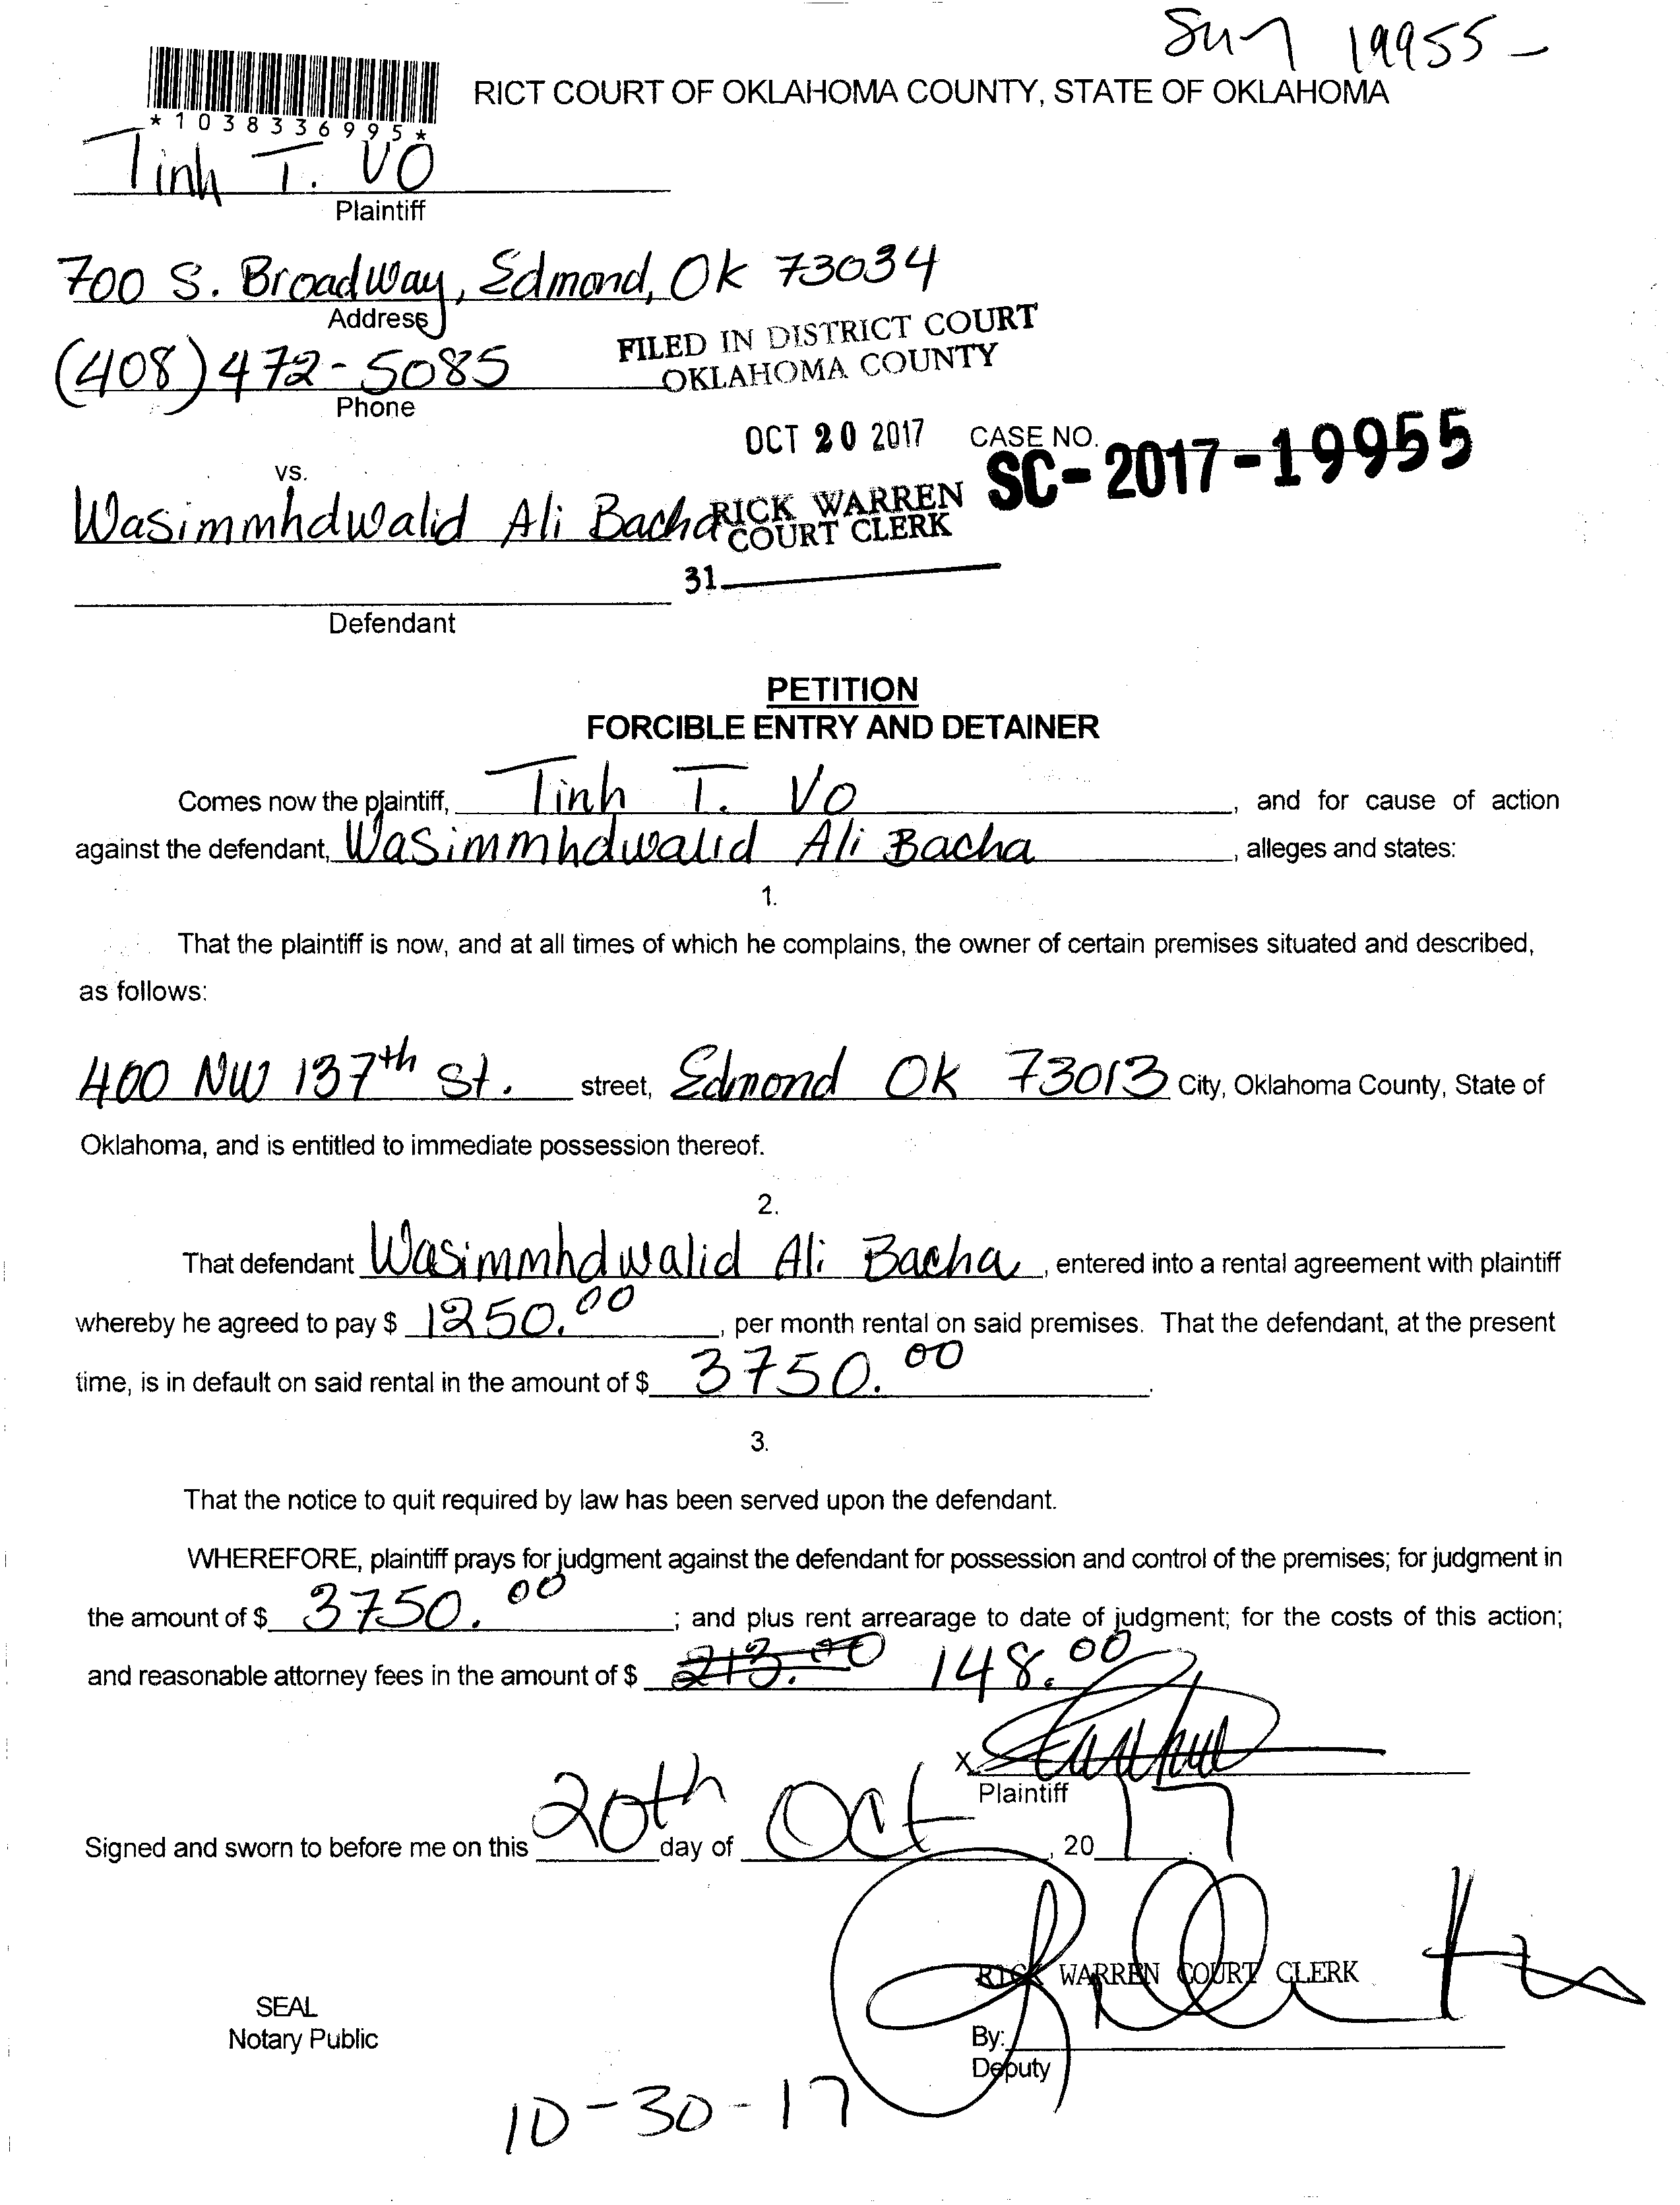 19955-
RICT COURT OF OKLAHOMA COUNTY, STATE OF OKLAHOMA
*1038336995*
Tinh T. VO
Plaintiff
700 S. Broadway, Edmond, Ok 73034
Address
(408) 472-5085
Phone
FILED IN DISTRICT COURT
OKLAHOMA COUNTY
OCT 20 2017
CASE NO.
SC-2017-19955
vs.
Wasimmhdwalid Ali Bacha
RICK WARREN
COURT CLERK
31
Defendant
PETITION
FORCIBLE ENTRY AND DETAINER
Comes now the plaintiff, Tinh T. Vo, and for cause of action
against the defendant, Wasimmhdwalid Ali Bacha, alleges and states:
1.
That the plaintiff is now, and at all times of which he complains, the owner of certain premises situated and described,
as follows:
400 NW 137th St. street, Edmond Ok 73013 City, Oklahoma County, State of
Oklahoma, and is entitled to immediate possession thereof.
2.
That defendant Wasimmhdwalid Ali Bacha, entered into a rental agreement with plaintiff
whereby he agreed to pay $ 1250.00, per month rental on said premises. That the defendant, at the present
time, is in default on said rental in the amount of $ 3750.00.
3.
That the notice to quit required by law has been served upon the defendant.
WHEREFORE, plaintiff prays for judgment against the defendant for possession and control of the premises; for judgment in
the amount of $ 3750.00; and plus rent arrearage to date of judgment; for the costs of this action;
and reasonable attorney fees in the amount of $ 213.00 148.00
X
Plaintiff
Signed and sworn to before me on this 20th day of Oct, 20 17.
RICK WARREN COURT CLERK
SEAL
Notary Public
By:
Deputy
10-30-17